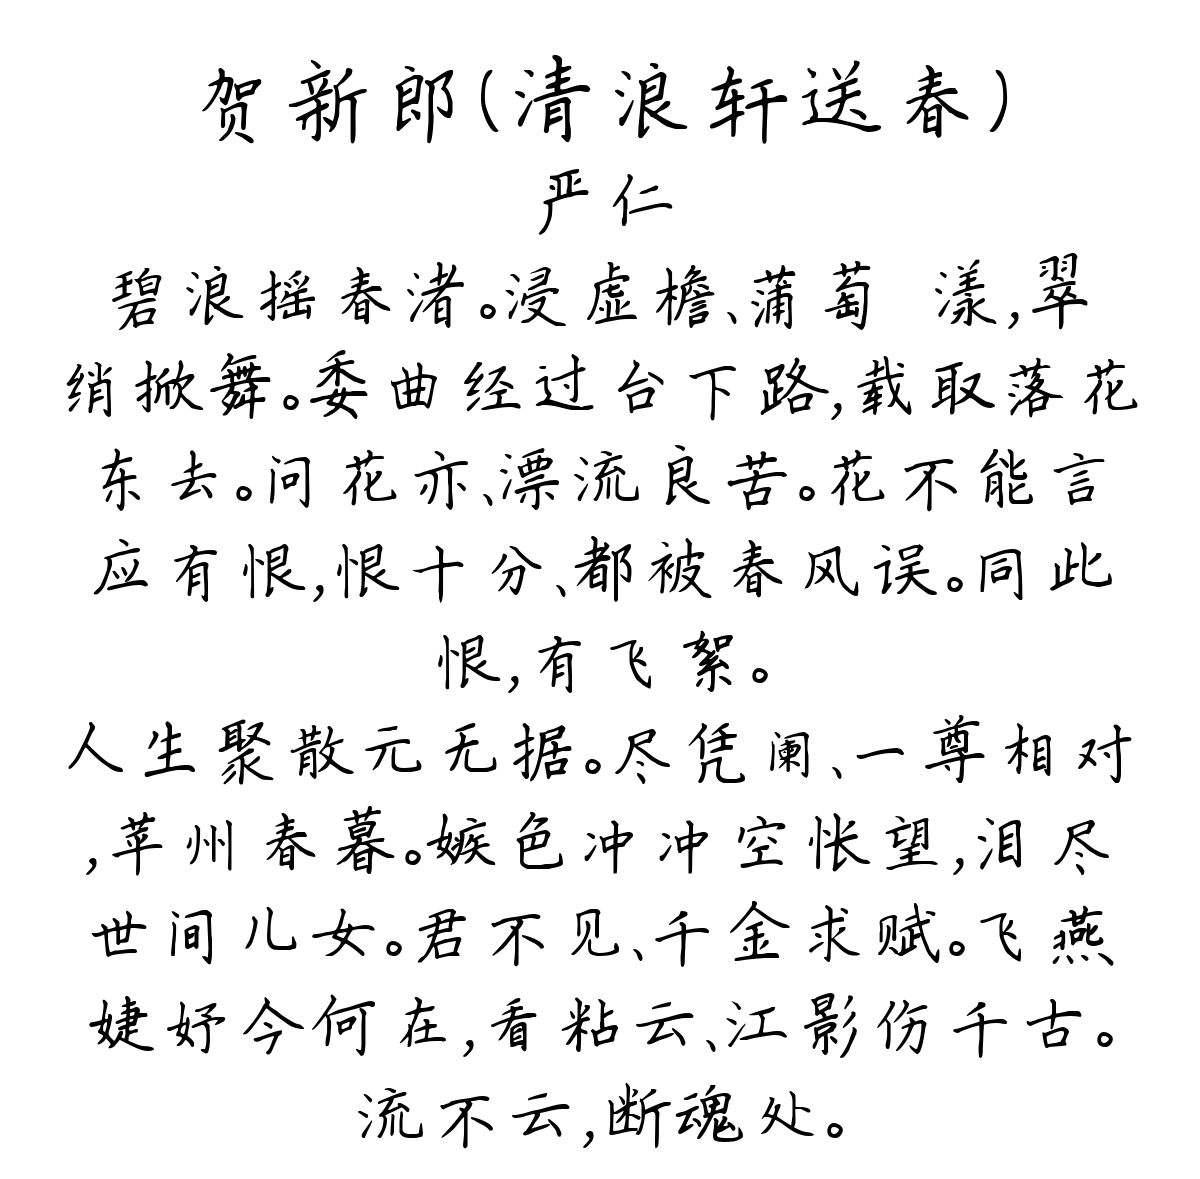 贺新郎(清浪轩送春)
严仁
碧浪摇春渚。浸虚檐、蒲萄 漾,翠
绡掀舞。委曲经过台下路,载取落花
东去。问花亦、漂流良苦。花不能言
应有恨,恨十分、都被春风误。同此
恨,有飞絮。
人生聚散元无据。尽凭阑、一尊相对
,苹州春暮。嫉色冲冲空怅望,泪尽
世间儿女。君不见、千金求赋。飞燕
婕妤今何在,看粘云、江影伤千古。
流不云,断魂处。